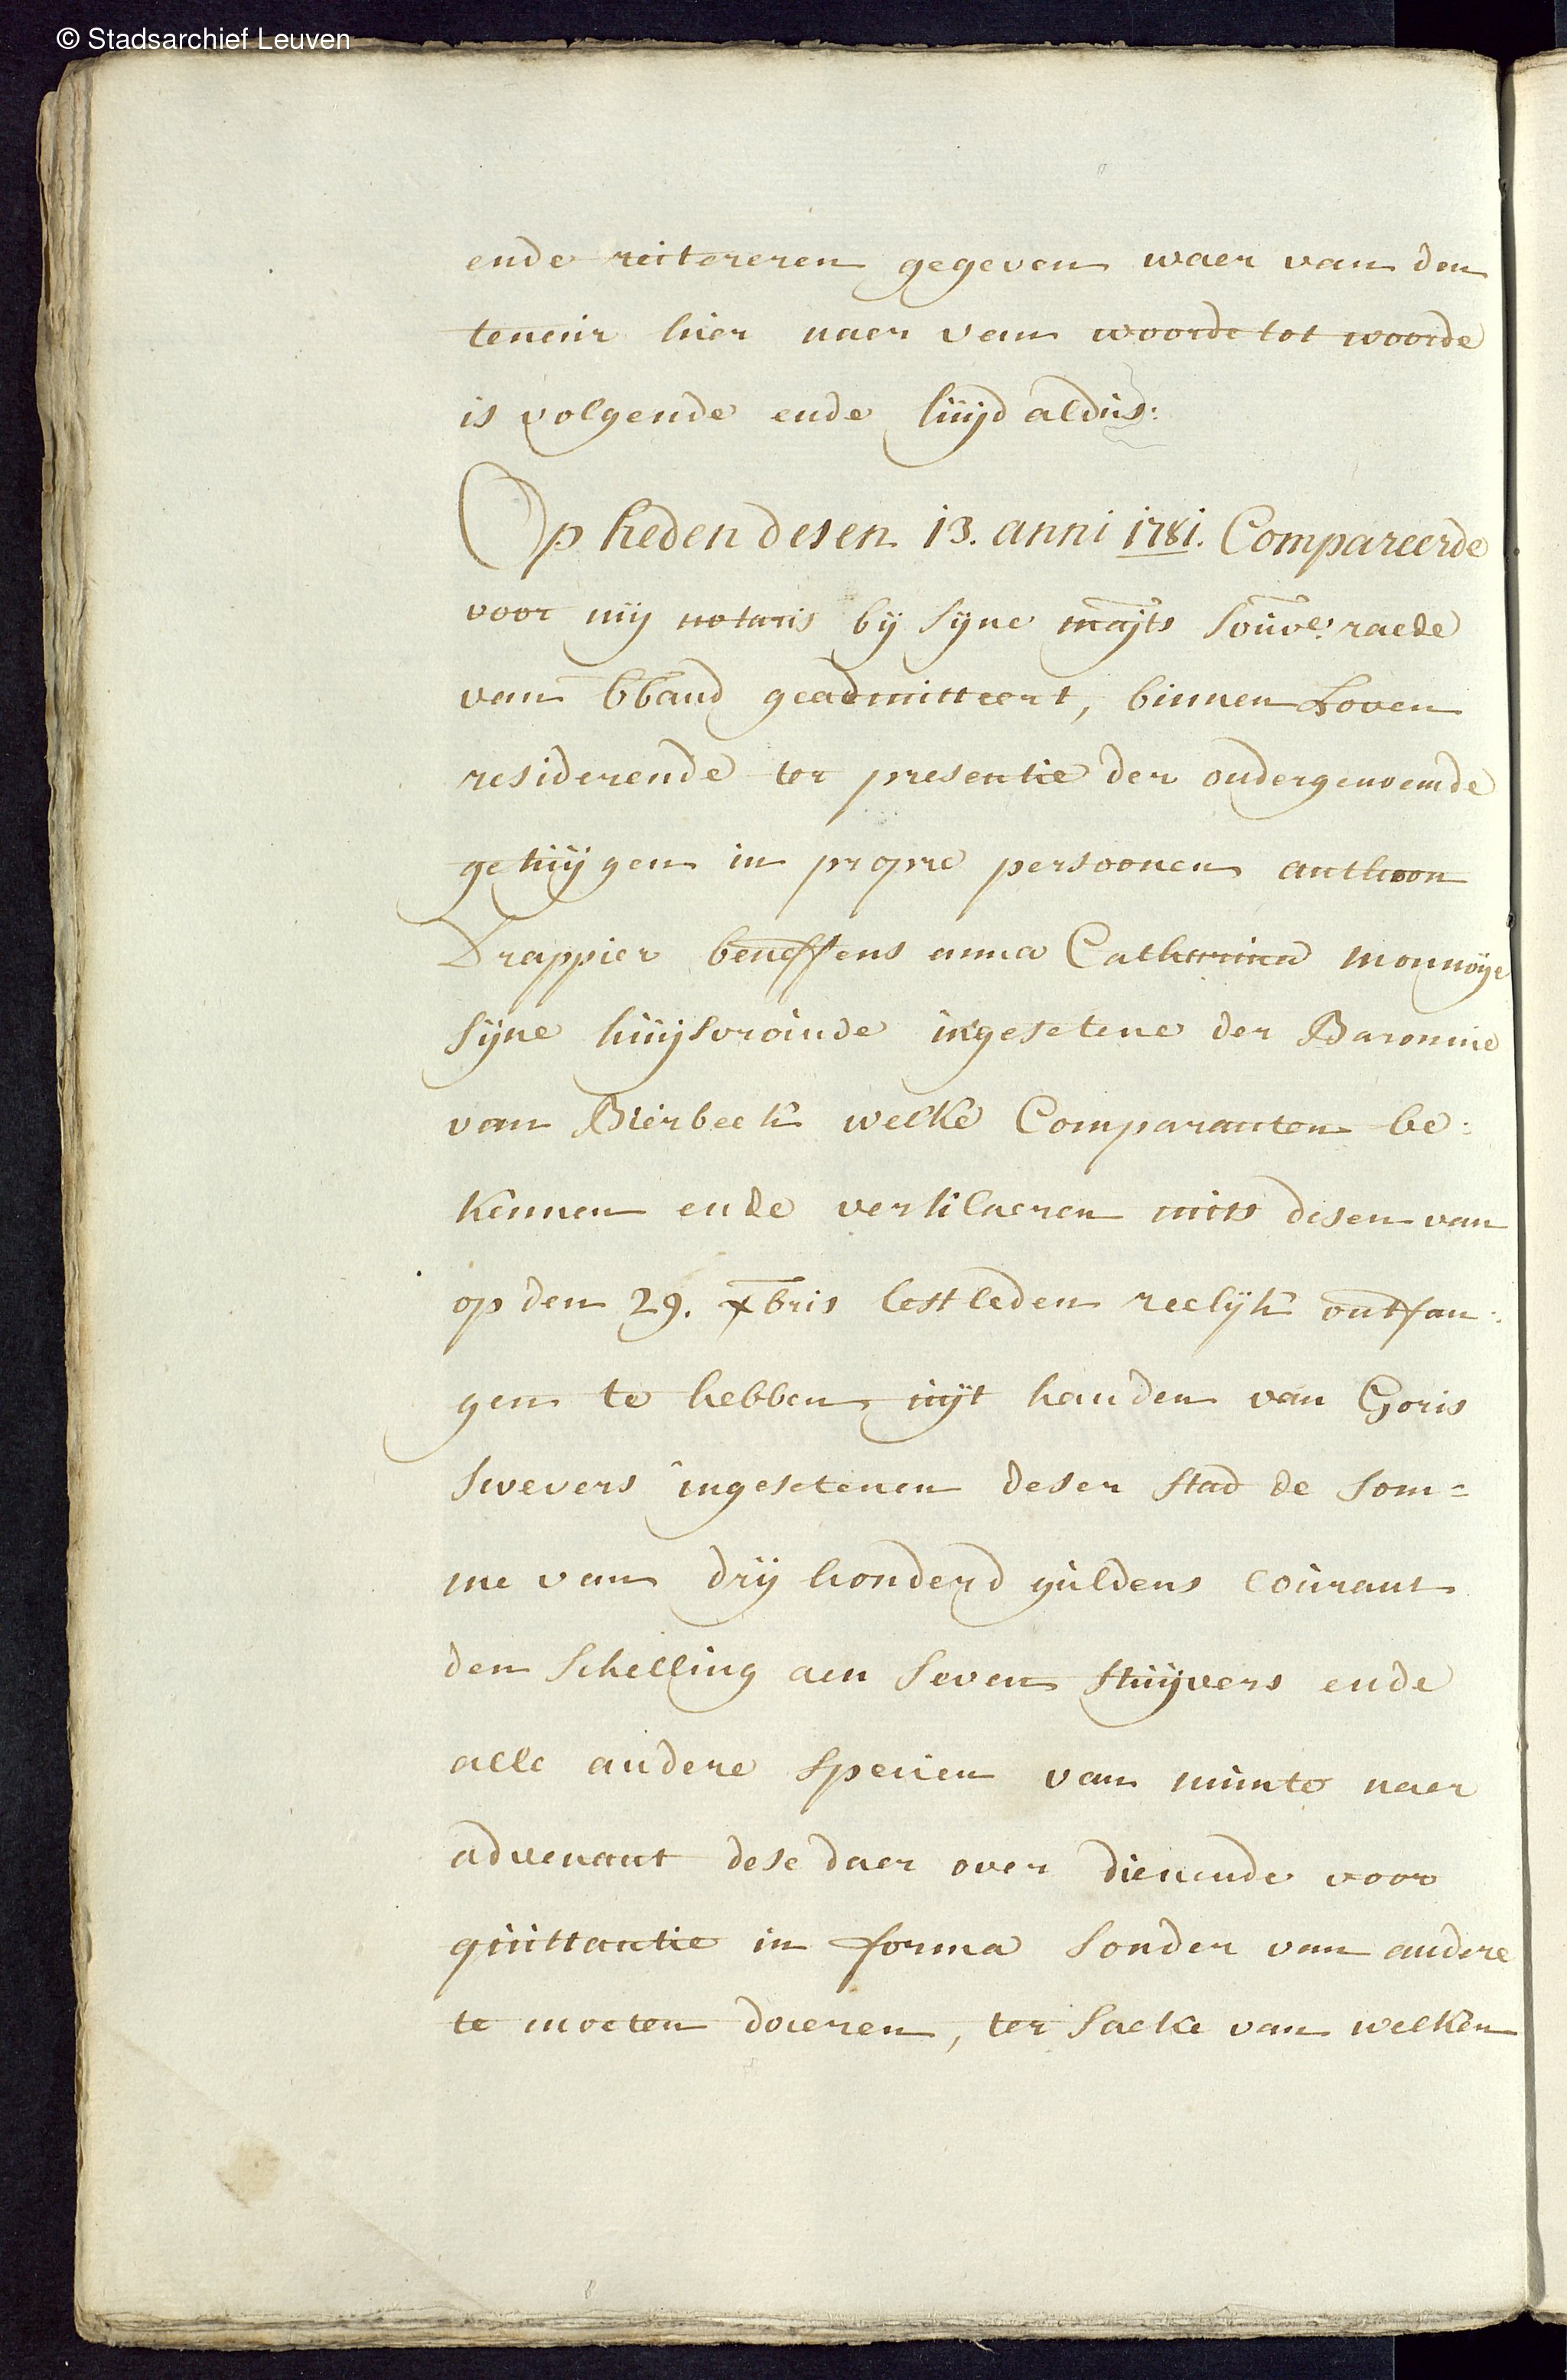 © Stadsarchief Leuven
ende reitereren gegeven waer van den
teneur hier naer van woorde tot woorde
is volgende ende luijd aldus:
Op heden desen 13. anni 1781. Compareerde
voor mij notaris bij sijne majts souve. raede
van bband geadmitteert, binnen Loven
residerende ter presentie der ondergenoemde
getuijgen in propre persoonen anthoon
Drappier beneffens anna Catharina monnoye
sijne huijsvrouwe ingesetene der Baronnie
van Bierbeek welke Comparanten be:
kennen ende verklaeren mits desen van
op den 29. xbris lestleden reelijk ontfan:
gen te hebben uijt handen van Goris
Swevers ingesetenen deser stad de som=
me van drij honderd guldens courant
den schelling aen seven stuijvers ende
alle andere specien van munte naer
advenant dese daer over dienende voor
quittantie in forma sonder van andere
te moeten doceren, ter saeke van welken